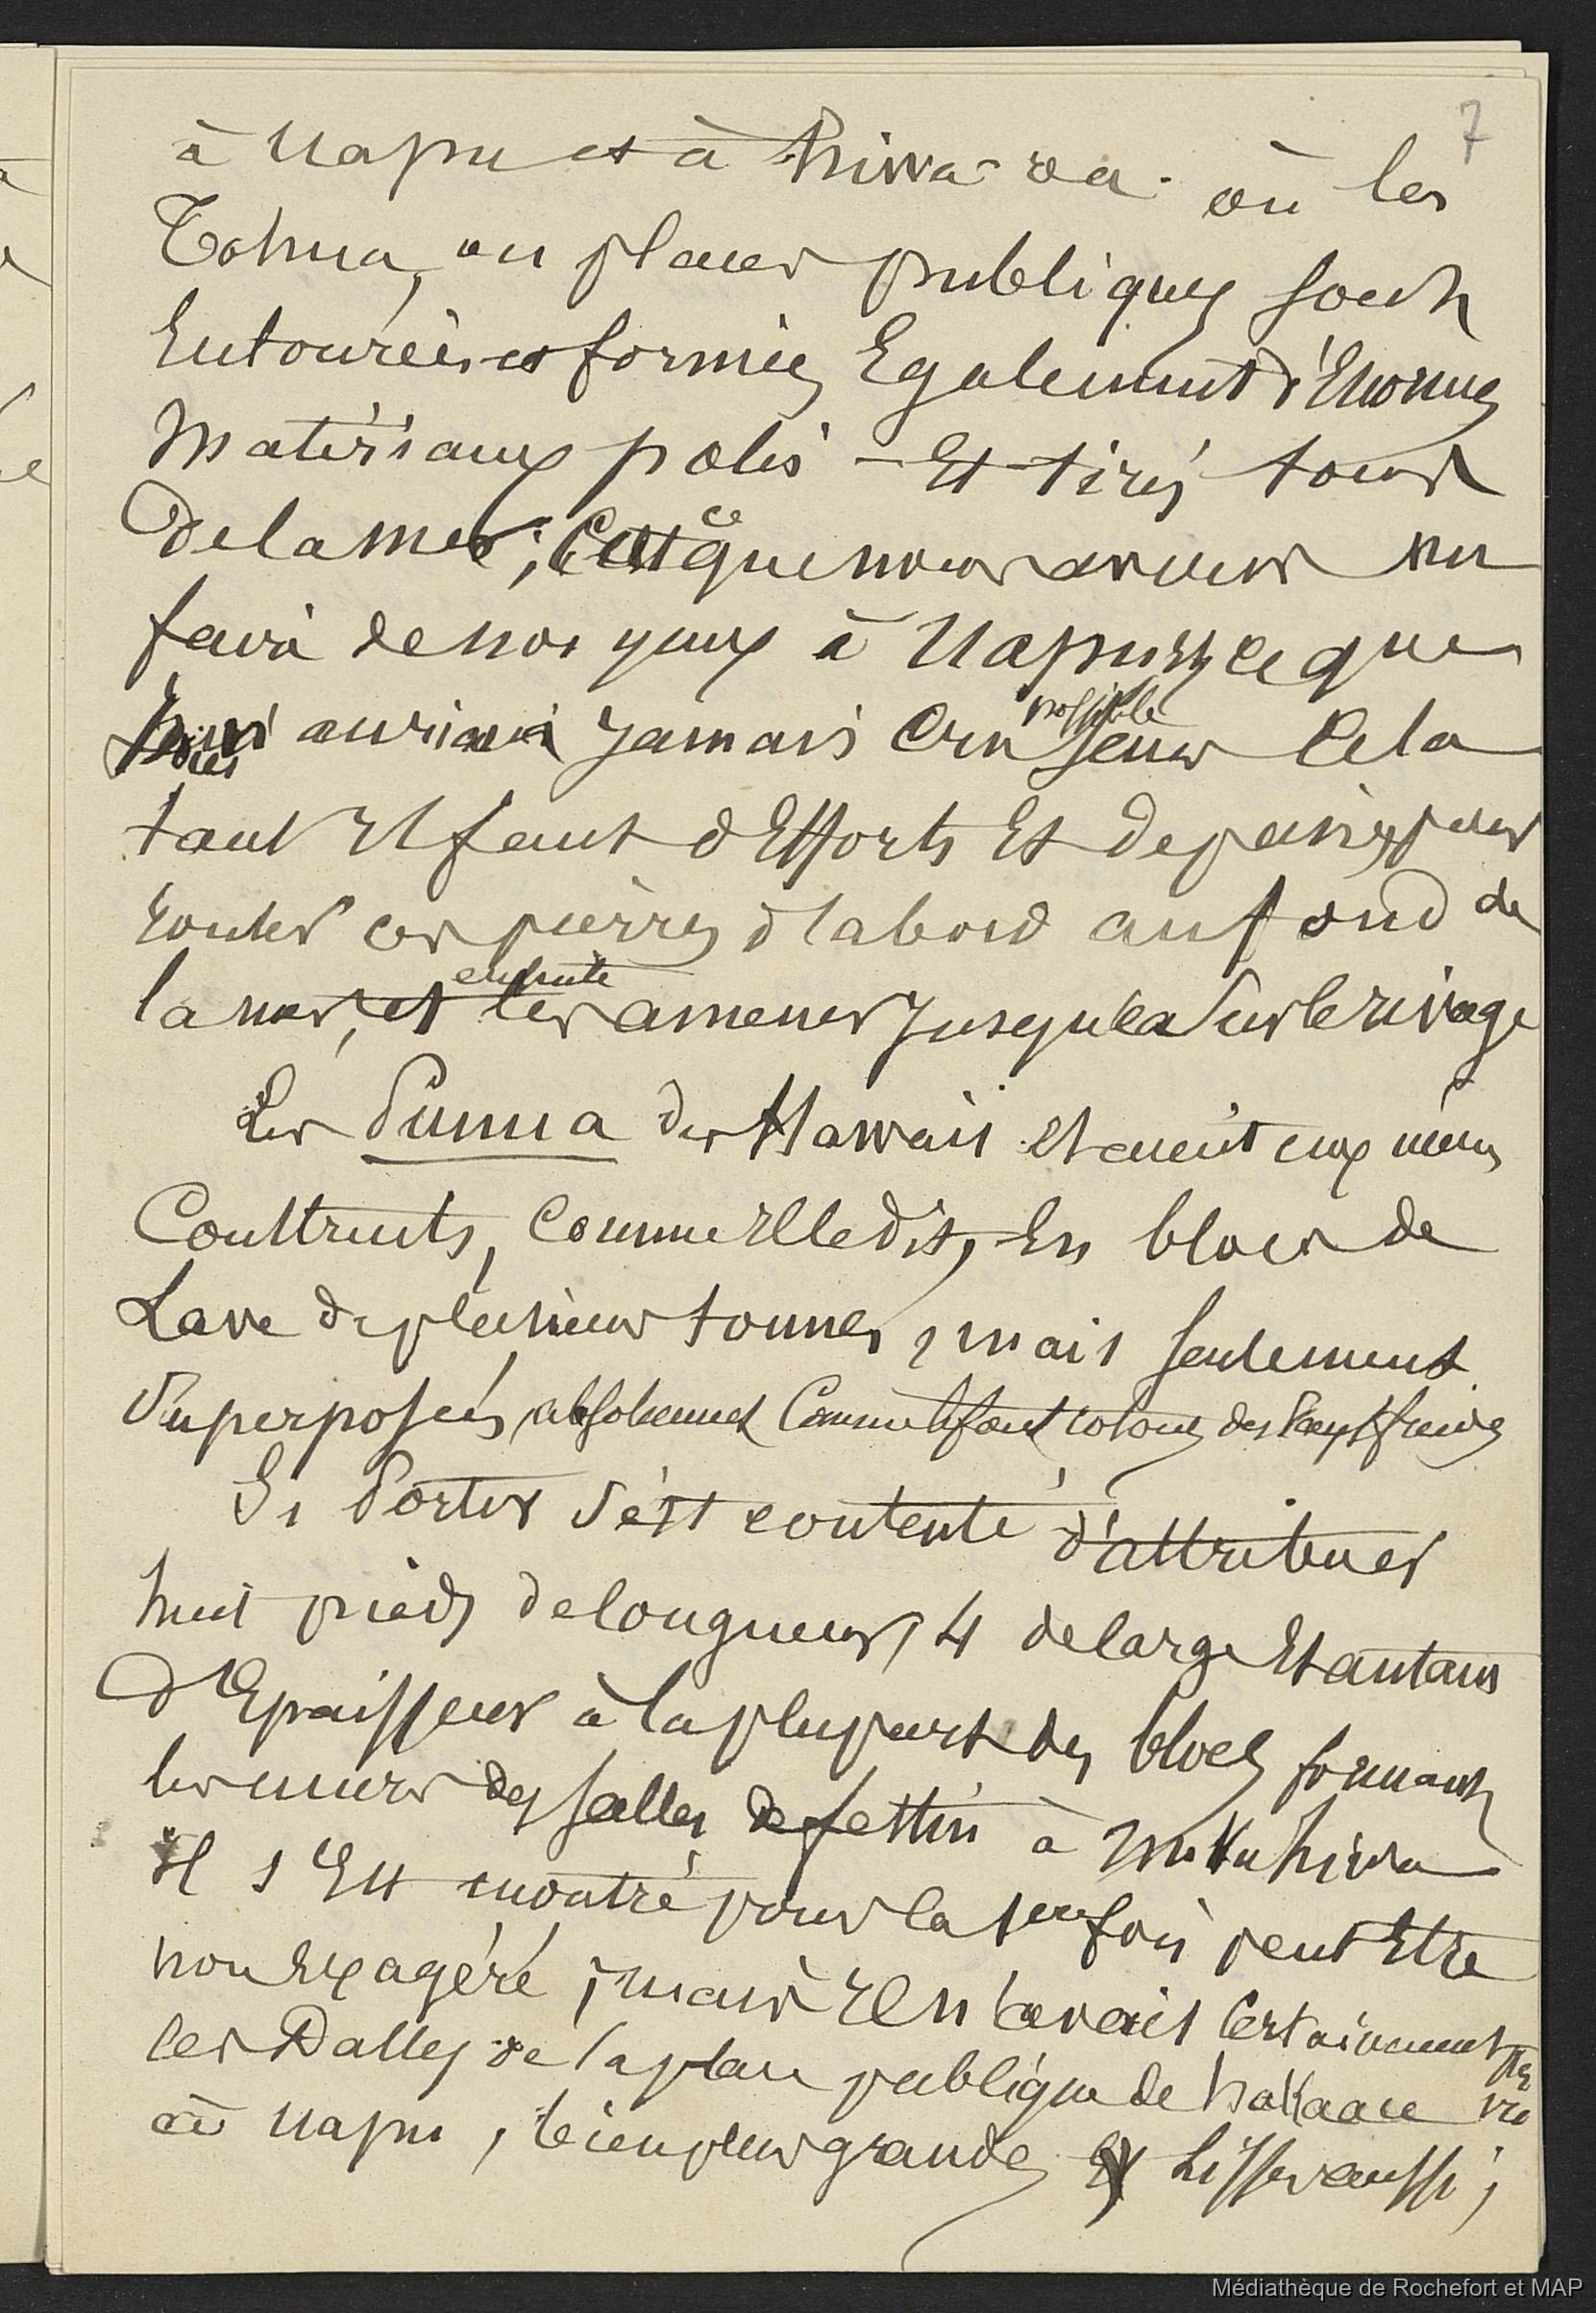 7
à Uapu et à hiva-oa où les
Tohua, ou places publiques sont
Entourées et formées Egalement d'Enormes
Matériaux polis - Et tirés tous
de la mer; C'est ce que nous avons vu
faire de nos yeux à Uapu, ce que
nous aurions jamais Cru possible sans Cela
tant il faut d'Efforts Et de peines pour
rouler ces pierres d'abord au fond de
la mer, et ensuite les amener jusque là sur le rivage
Les Punua des Hawaii étaient eux mêmes
Construits, Comme il le dit, En blocs de
Lave de plusieurs tonnes, mais seulement
Superposés, absolument Comme le font colons des Pays
Si Porter s'est contenté d'attribuer
huit pieds de longueur, 4 de large Et autant
d'Epaisseur à la plupart des blocs formant
les murs des salles de festin à Nukuhiva
il s'Est montré pour la 1ere fois peut Etre
non Exagéré, mais il n'avait Certainement pas vu
les Dalles de la place publique de hakaaou
à Uapu, bien plus grandes Et Lisses aussi;
Médiathèque de Rochefort et MAP